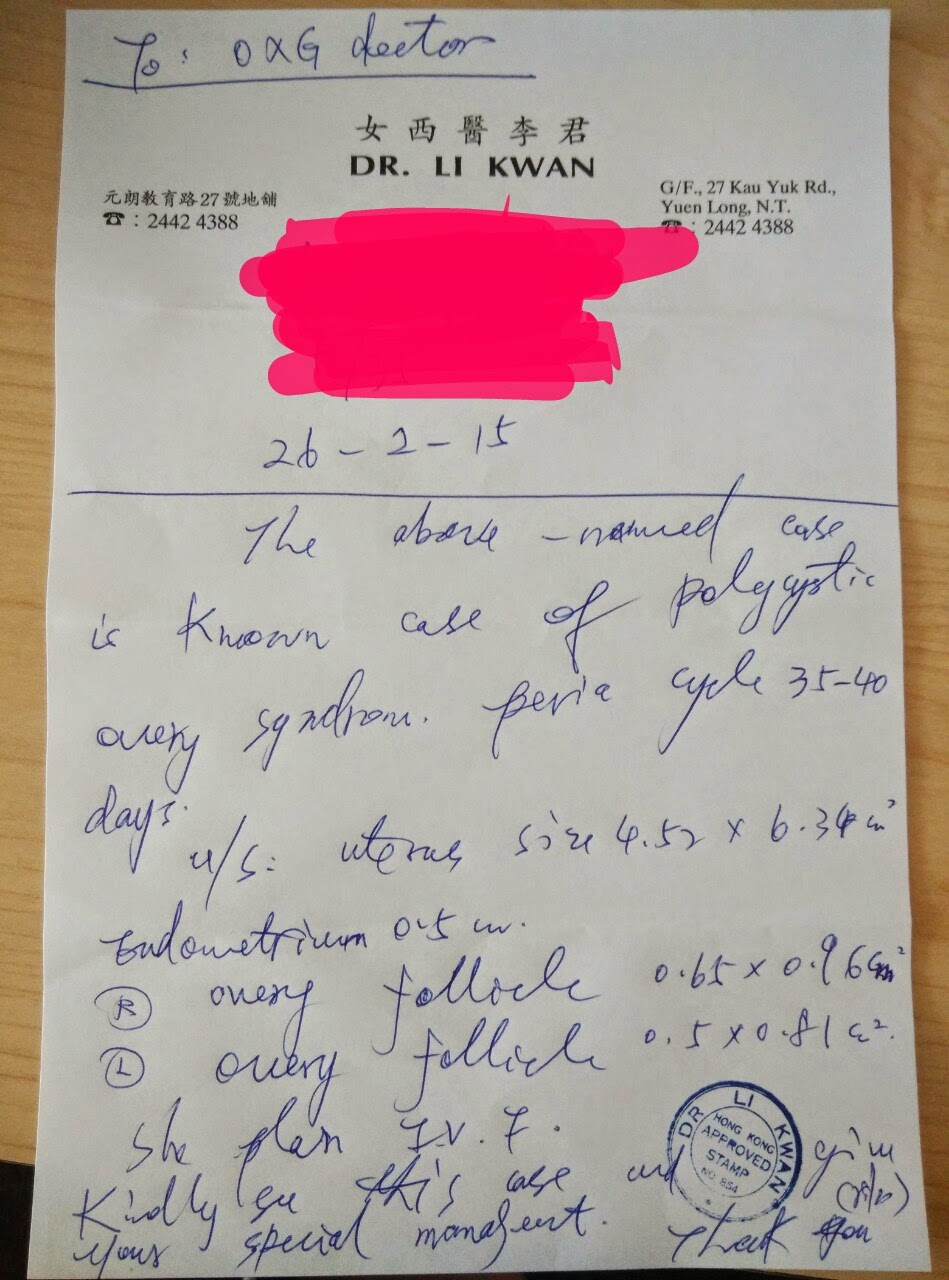 To: O&G doctor
女西醫李君
DR. LI KWAN
元朗教育路27號地舖
☎ : 2442 4388
G/F., 27 Kau Yuk Rd.,
Yuen Long, N.T.
☎ : 2442 4388
26 - 2 - 15
The above - named case
is known case of polycystic
overy syndrom. peria cycle 35-40
days.
u/s: uterus size 4.52 x 6.34 cm²
Endometrium 0.5 cm.
(R) overy follicle 0.65 x 0.96 cm²
(L) overy follicle 0.5 x 0.81 cm².
She plan I.V.F.
Kindly see this case and give
your special manageent. Thank you
DR LI KWAN
HONG KONG
APPROVED
STAMP
NO. 854